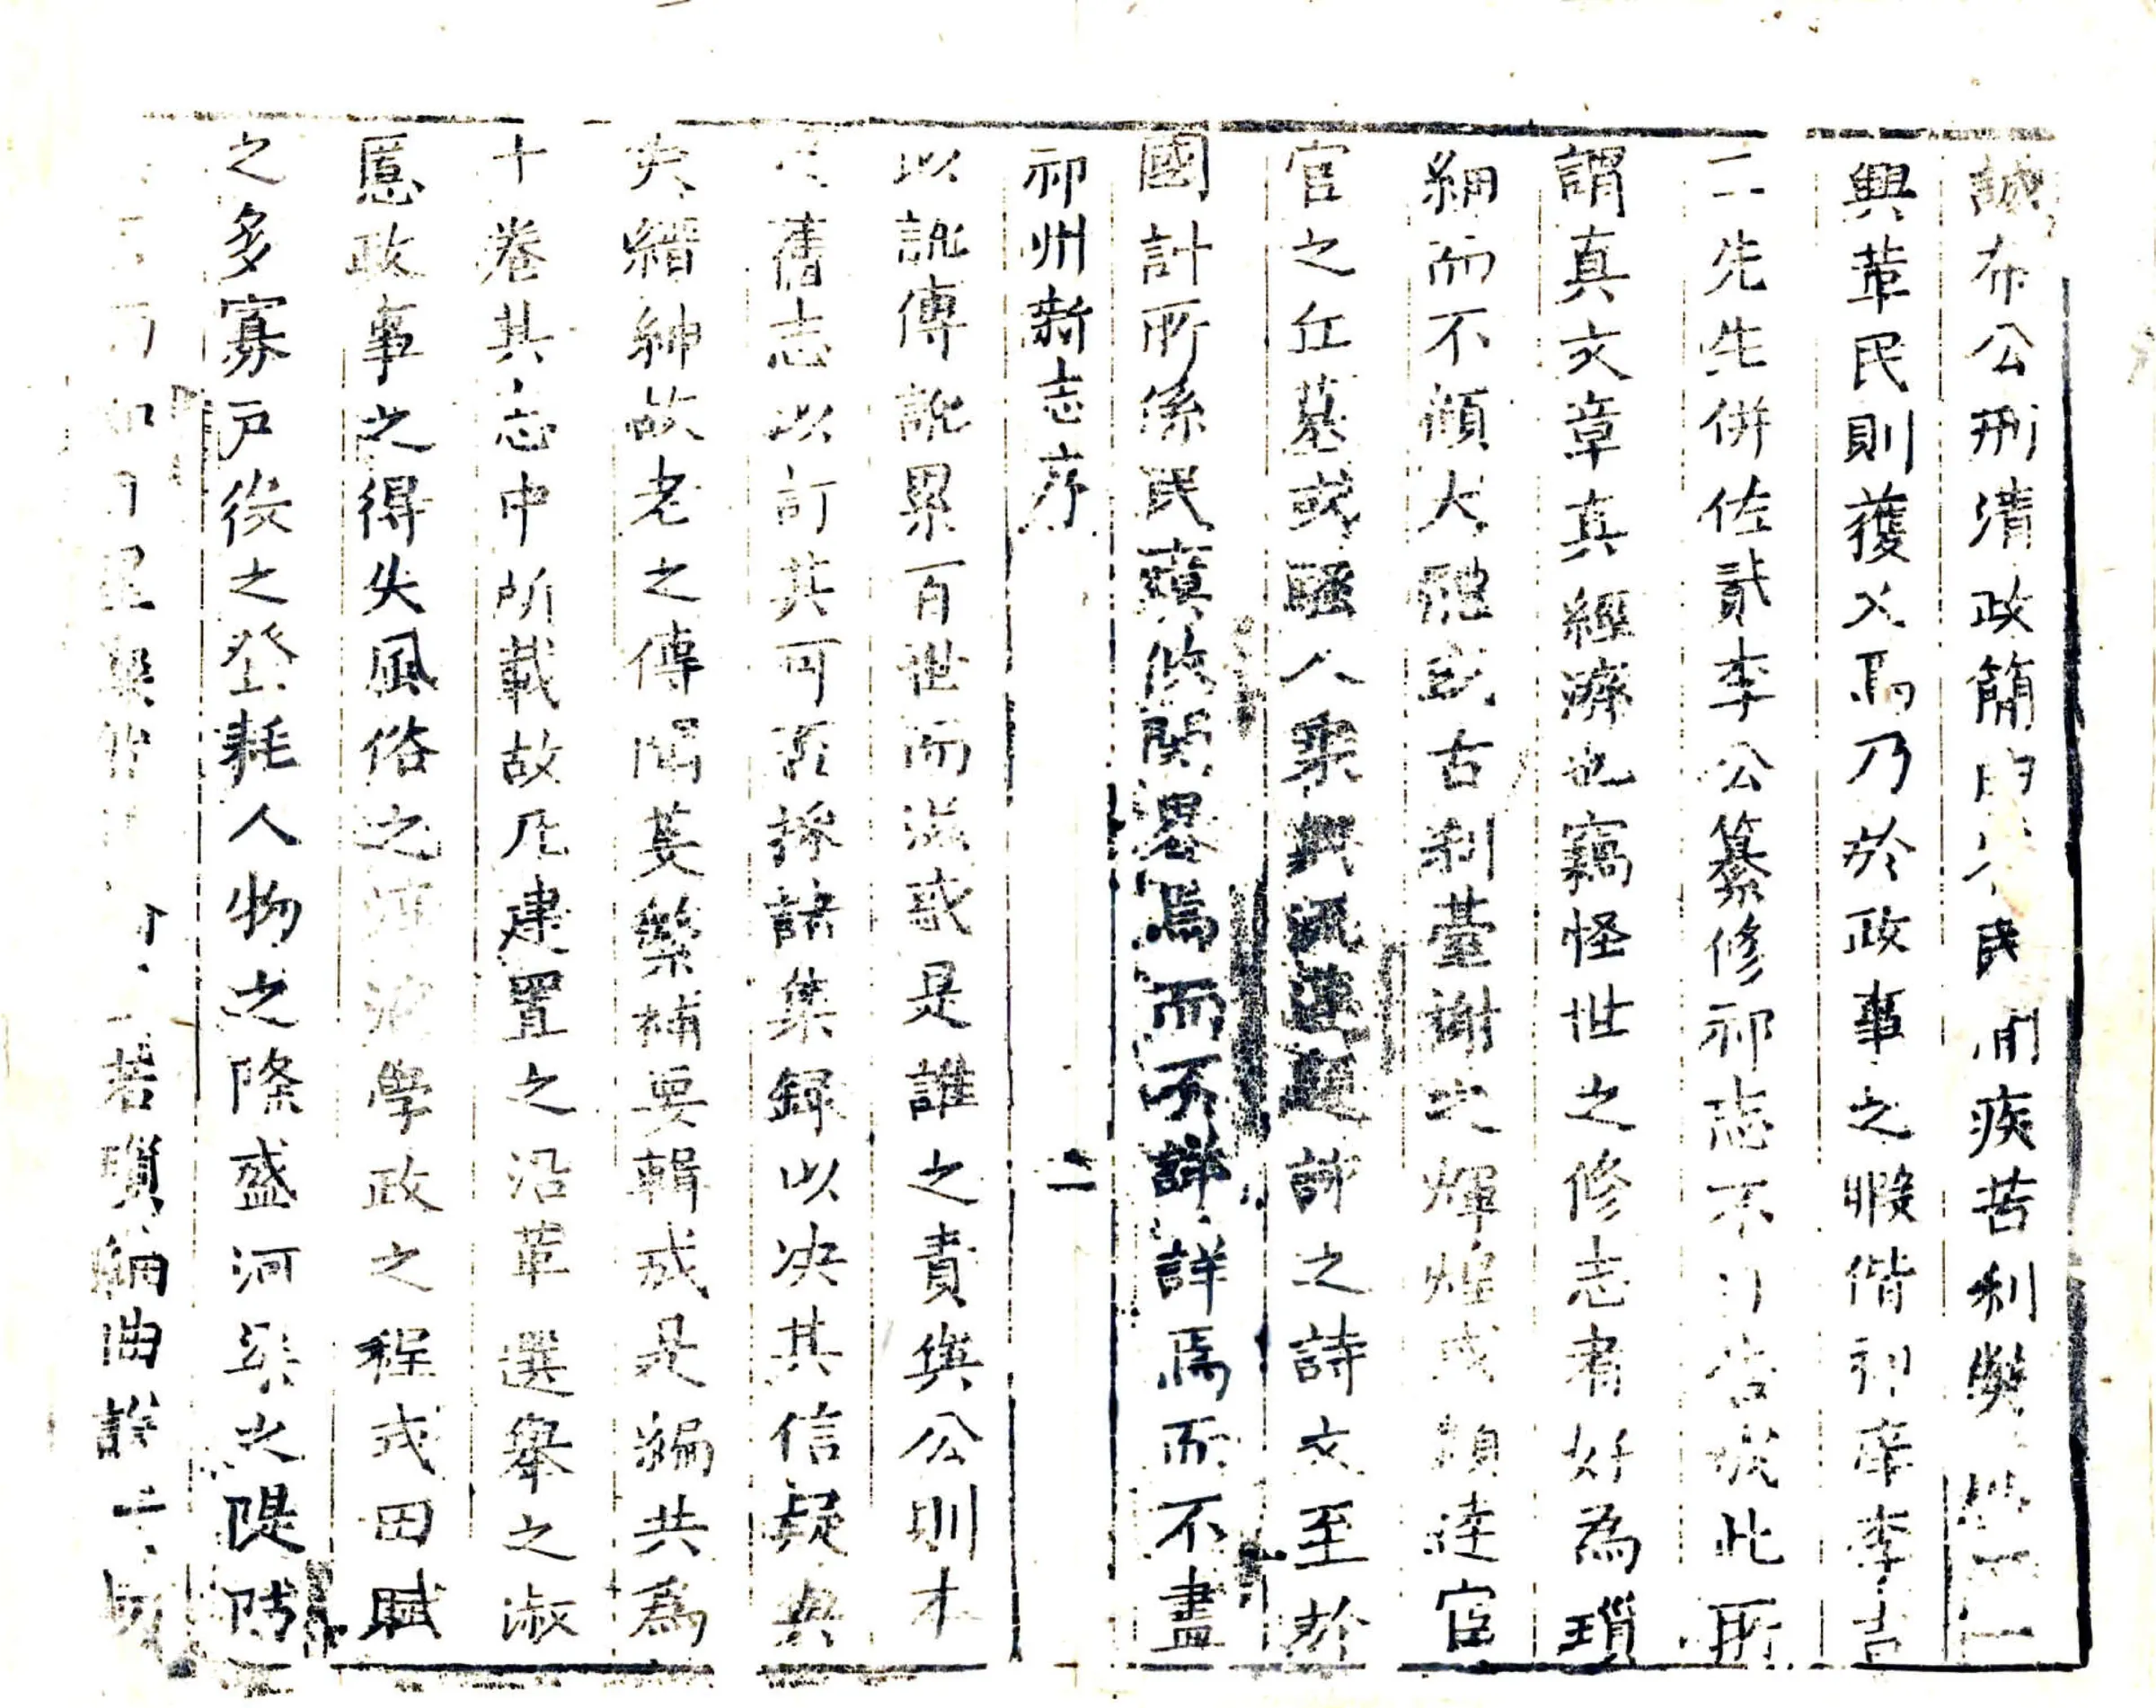 誠布公刑清政簡時民間疾苦利弊一一
興革民則獲乂焉乃於政事之暇偕判庠李吉
二先生併佐貳李公纂修祁志不以告災此所
謂真文章真經濟也竊怪世之修志者好為瑣
細而不顧大體或古刹臺榭之輝煌或顯達宦
官之丘墓或騷人槩與汎蓮題詠之詩文至於
國計所係民瘼攸関畧焉而不詳詳焉而不盡
祁州新志序
二
以訛傳訛累百世而滋惑是誰之責與公則本
之舊志以訂其可否採諸集録以决其信疑央
失縉紳故老之傳聞芟繁補要輯成是編共為
十卷其志中所載故凡建置之沿革選舉之淑
慝政事之得失風俗之淳澆學政之程式田賦
之多寡戶役之登耗人物之隆盛河渠之隄防
若瑣細曲說